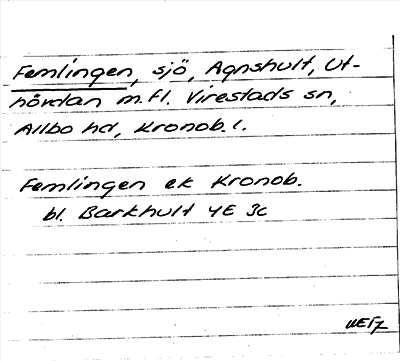 Femlingen, sjö, Agnshult, Ut-
hövdan m.fl. Virestads sn,
Allbo hd, Kronob. l.
Femlingen ek Kronob.
bl. Barkhult 4E 3c